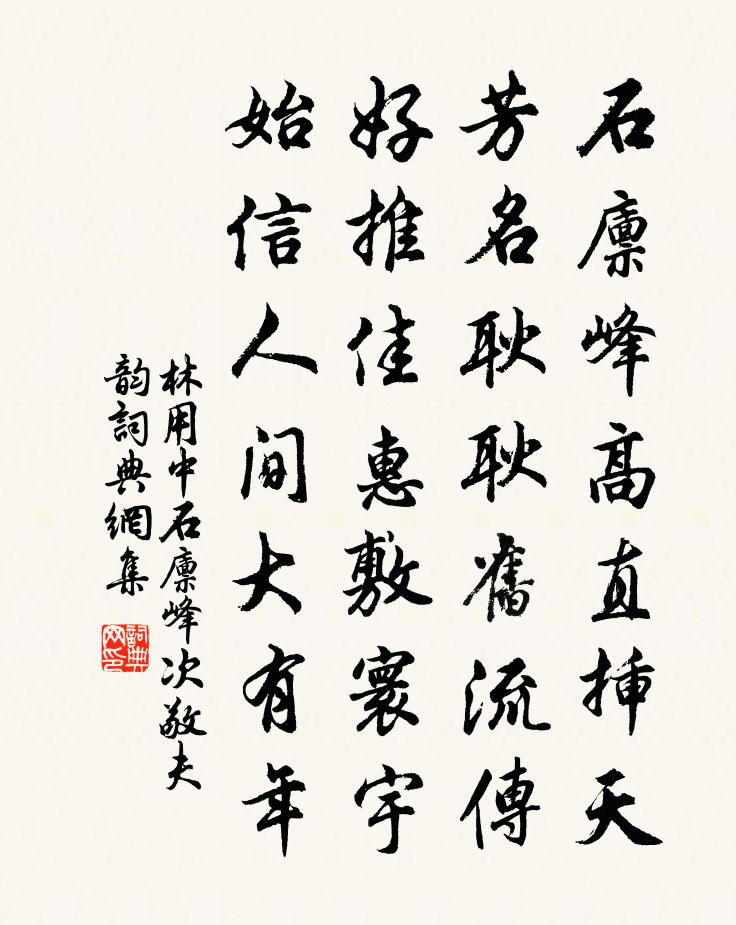 石廪峰高直揷天
芳名耿耿舊流傳
好推佳惠敷寰宇
始信人间大有年
林用中石廪峰次敬夫
韵詞典網集
詞典
网印